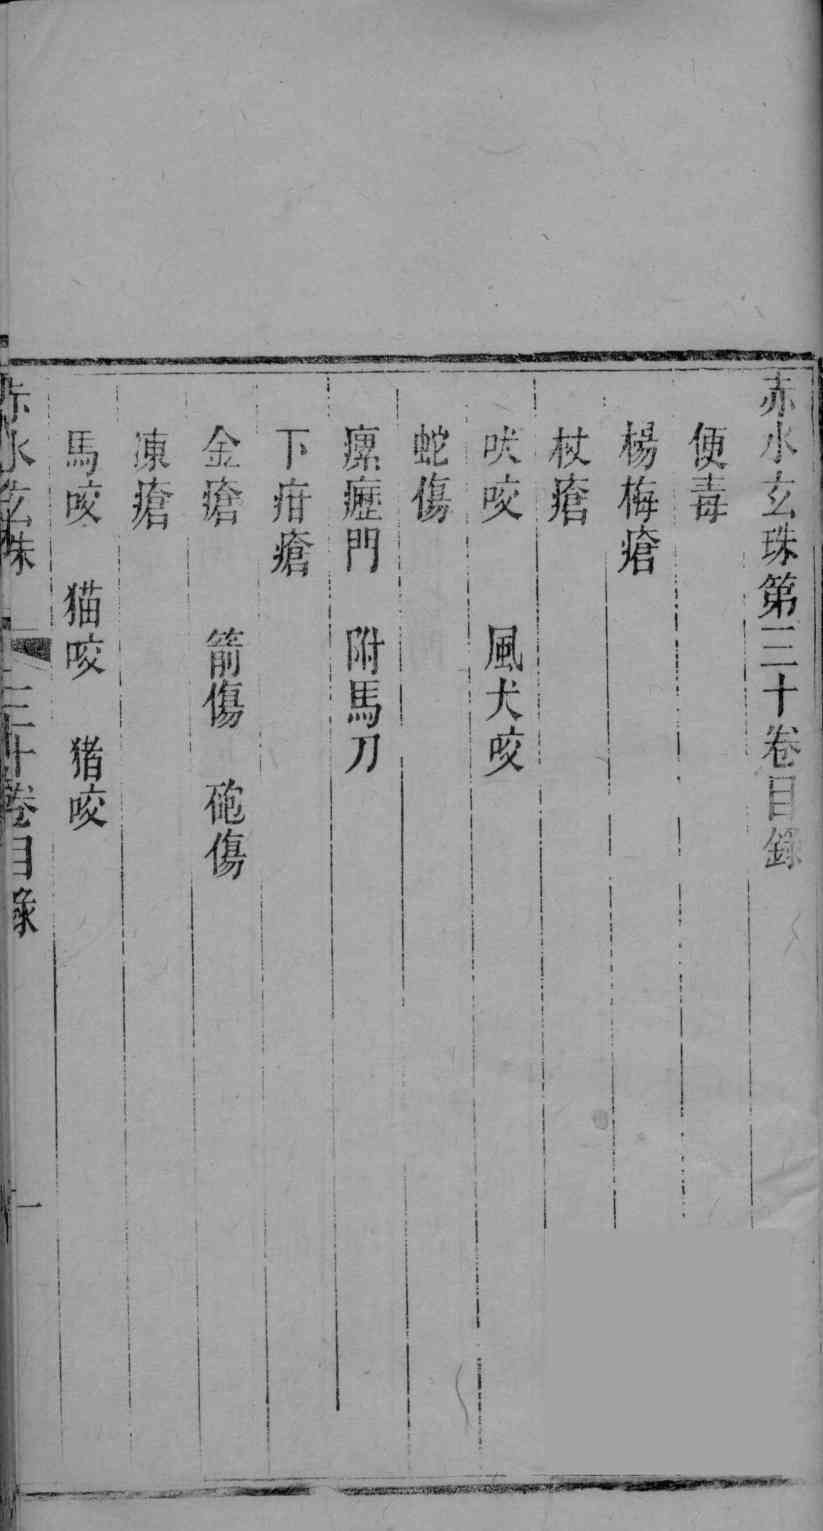 赤水玄珠第三十卷目錄
便毒
楊梅瘡
杖瘡
吠咬　風犬咬
蛇傷
瘰癧門　附馬刀
下疳瘡
金瘡　箭傷　砲傷
凍瘡
馬咬　猫咬　猪咬
赤水玄珠　三十卷目彔　一